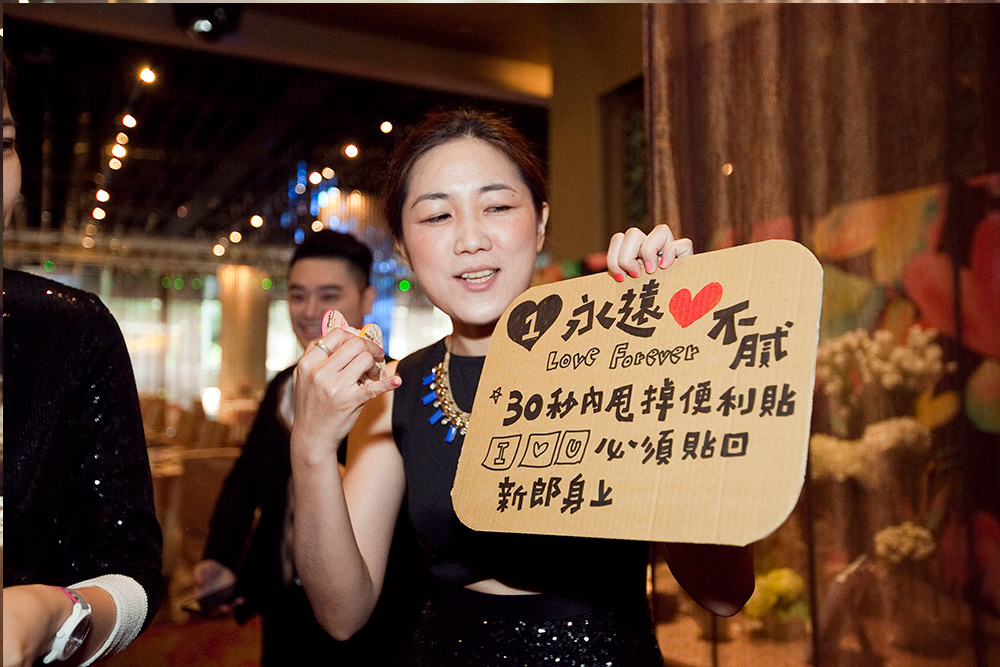 1 永遠♥不膩
Love Forever
☆30秒內甩掉便利貼
I ♡ U 必須貼回
新郎身上